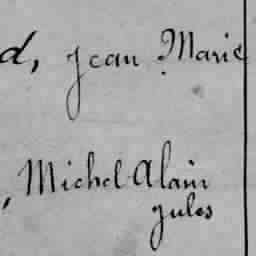 d, Jean Marie
, Michel Alain
Jules